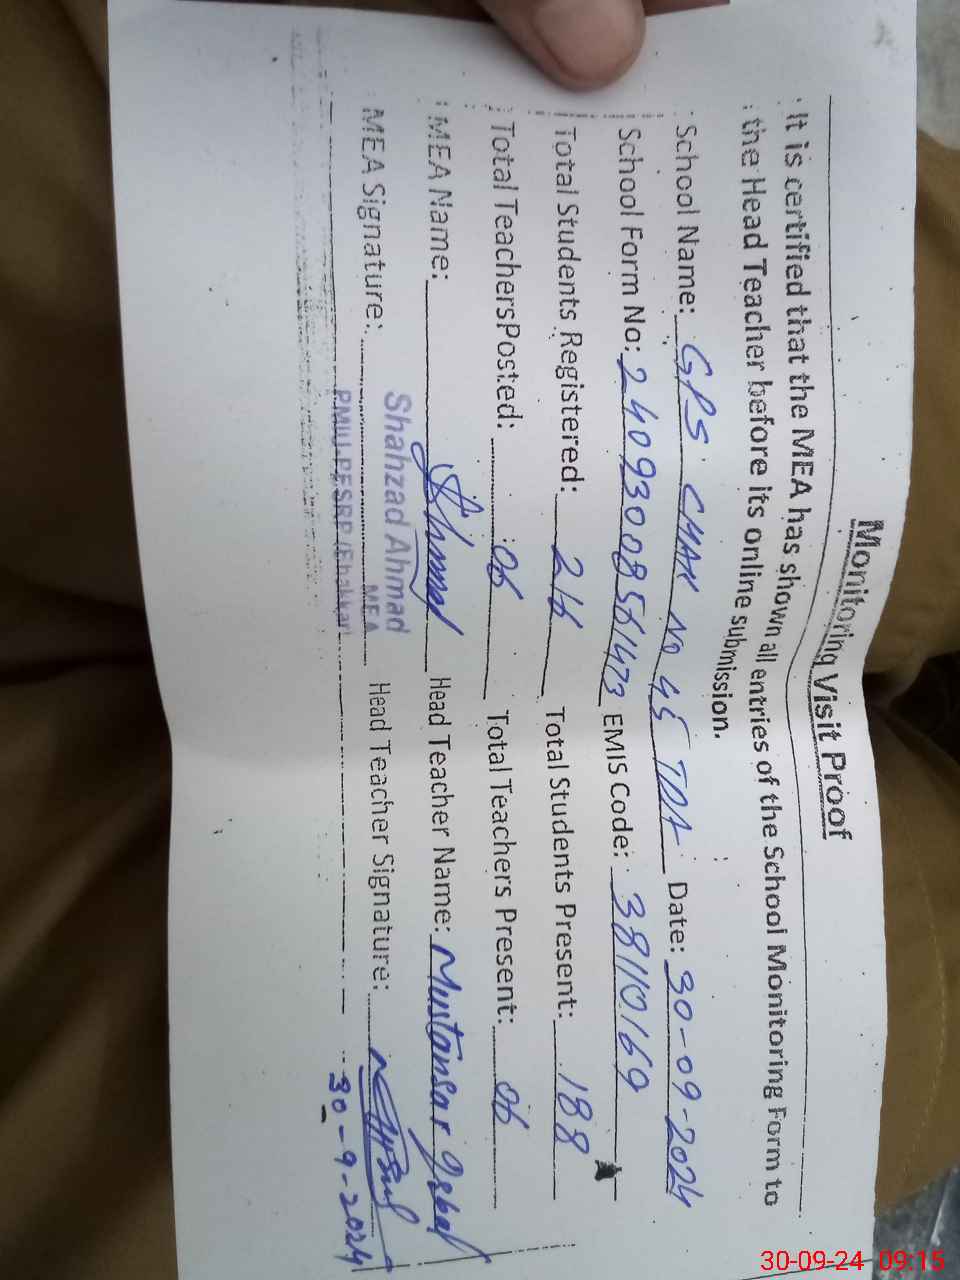 Monitoring Visit Proof
It is certified that the MEA has shown all entries of the School Monitoring Form to
the Head Teacher before its online submission.
School Name: GPS CHAK NO 45 TDA Date: 30-09-2024
School Form No: 24093008561473 EMIS Code: 38110169
Total Students Registered: 216 Total Students Present: 188
Total TeachersPosted: 06 Total Teachers Present: 06
MEA Name: Head Teacher Name: Mustansar Iqbal
MEA Signature: Head Teacher Signature:
Shahzad Ahmad
MEA
PMIU-PESRP (Bhakkar)
30-9-2024
30-09-24 09:15